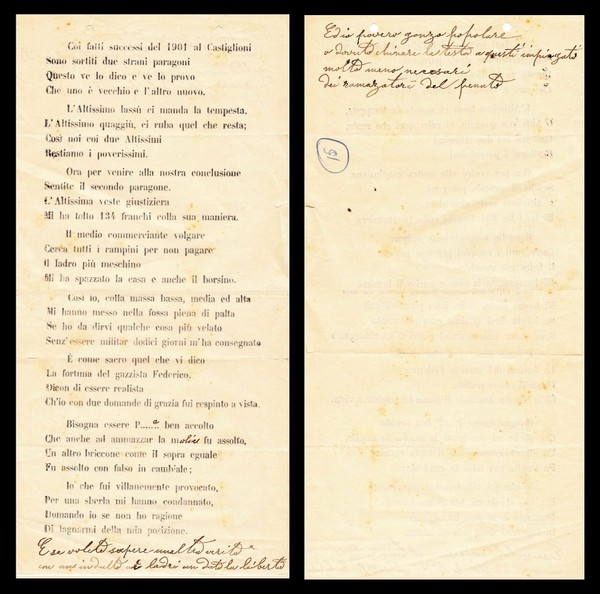 Coi fatti successi del 1901 al Castiglioni
Sono sortiti due strani paragoni
Questo ve lo dico e ve lo provo
Che uno è vecchio e l'altro nuovo.
L'Altissimo lassù ci manda la tempesta,
L'Altissimo quaggiù, ci ruba quel che resta;
Così noi coi due Altissimi
Restiamo i poverissimi.
Ora per venire alla nostra conclusione
Sentite il secondo paragone.
L'Altissima veste giustiziera
Mi ha tolto 134 franchi colla sua maniera.
Il medio commerciante volgare
Cerca tutti i rampini per non pagare
Il ladro più meschino
Mi ha spazzato la casa e anche il borsino.
Così io, colla massa bassa, media ed alta
Mi hanno messo nella fossa piena di palta
Se ho da dirvi qualche cosa più velato
Senz'essere militar dodici giorni m'ha consegnato
È come sacro quel che vi dico
La fortuna del guzzista Federico.
Dicon di essere realista
Ch'io con due domande di grazia fui respinto a vista.
Bisogna essere P.....a ben accolto
Che anche ad ammazzar la molie fu assolto,
Un altro briccone come il sopra eguale
Fu assolto con falso in cambiale;
Io che fui villanemente provocato,
Per una sberla mi hanno condannato,
Domando io se non ho ragione
Di lagnarmi della mia posizione.
E se volete sapere un'altra verità
con un indulto ai ladri an dato la libertà
Ed io povero gonzo popolare
o dovuto chinare la testa a questi impiegati
molto meno necesari
dei ramazatori del senato
15